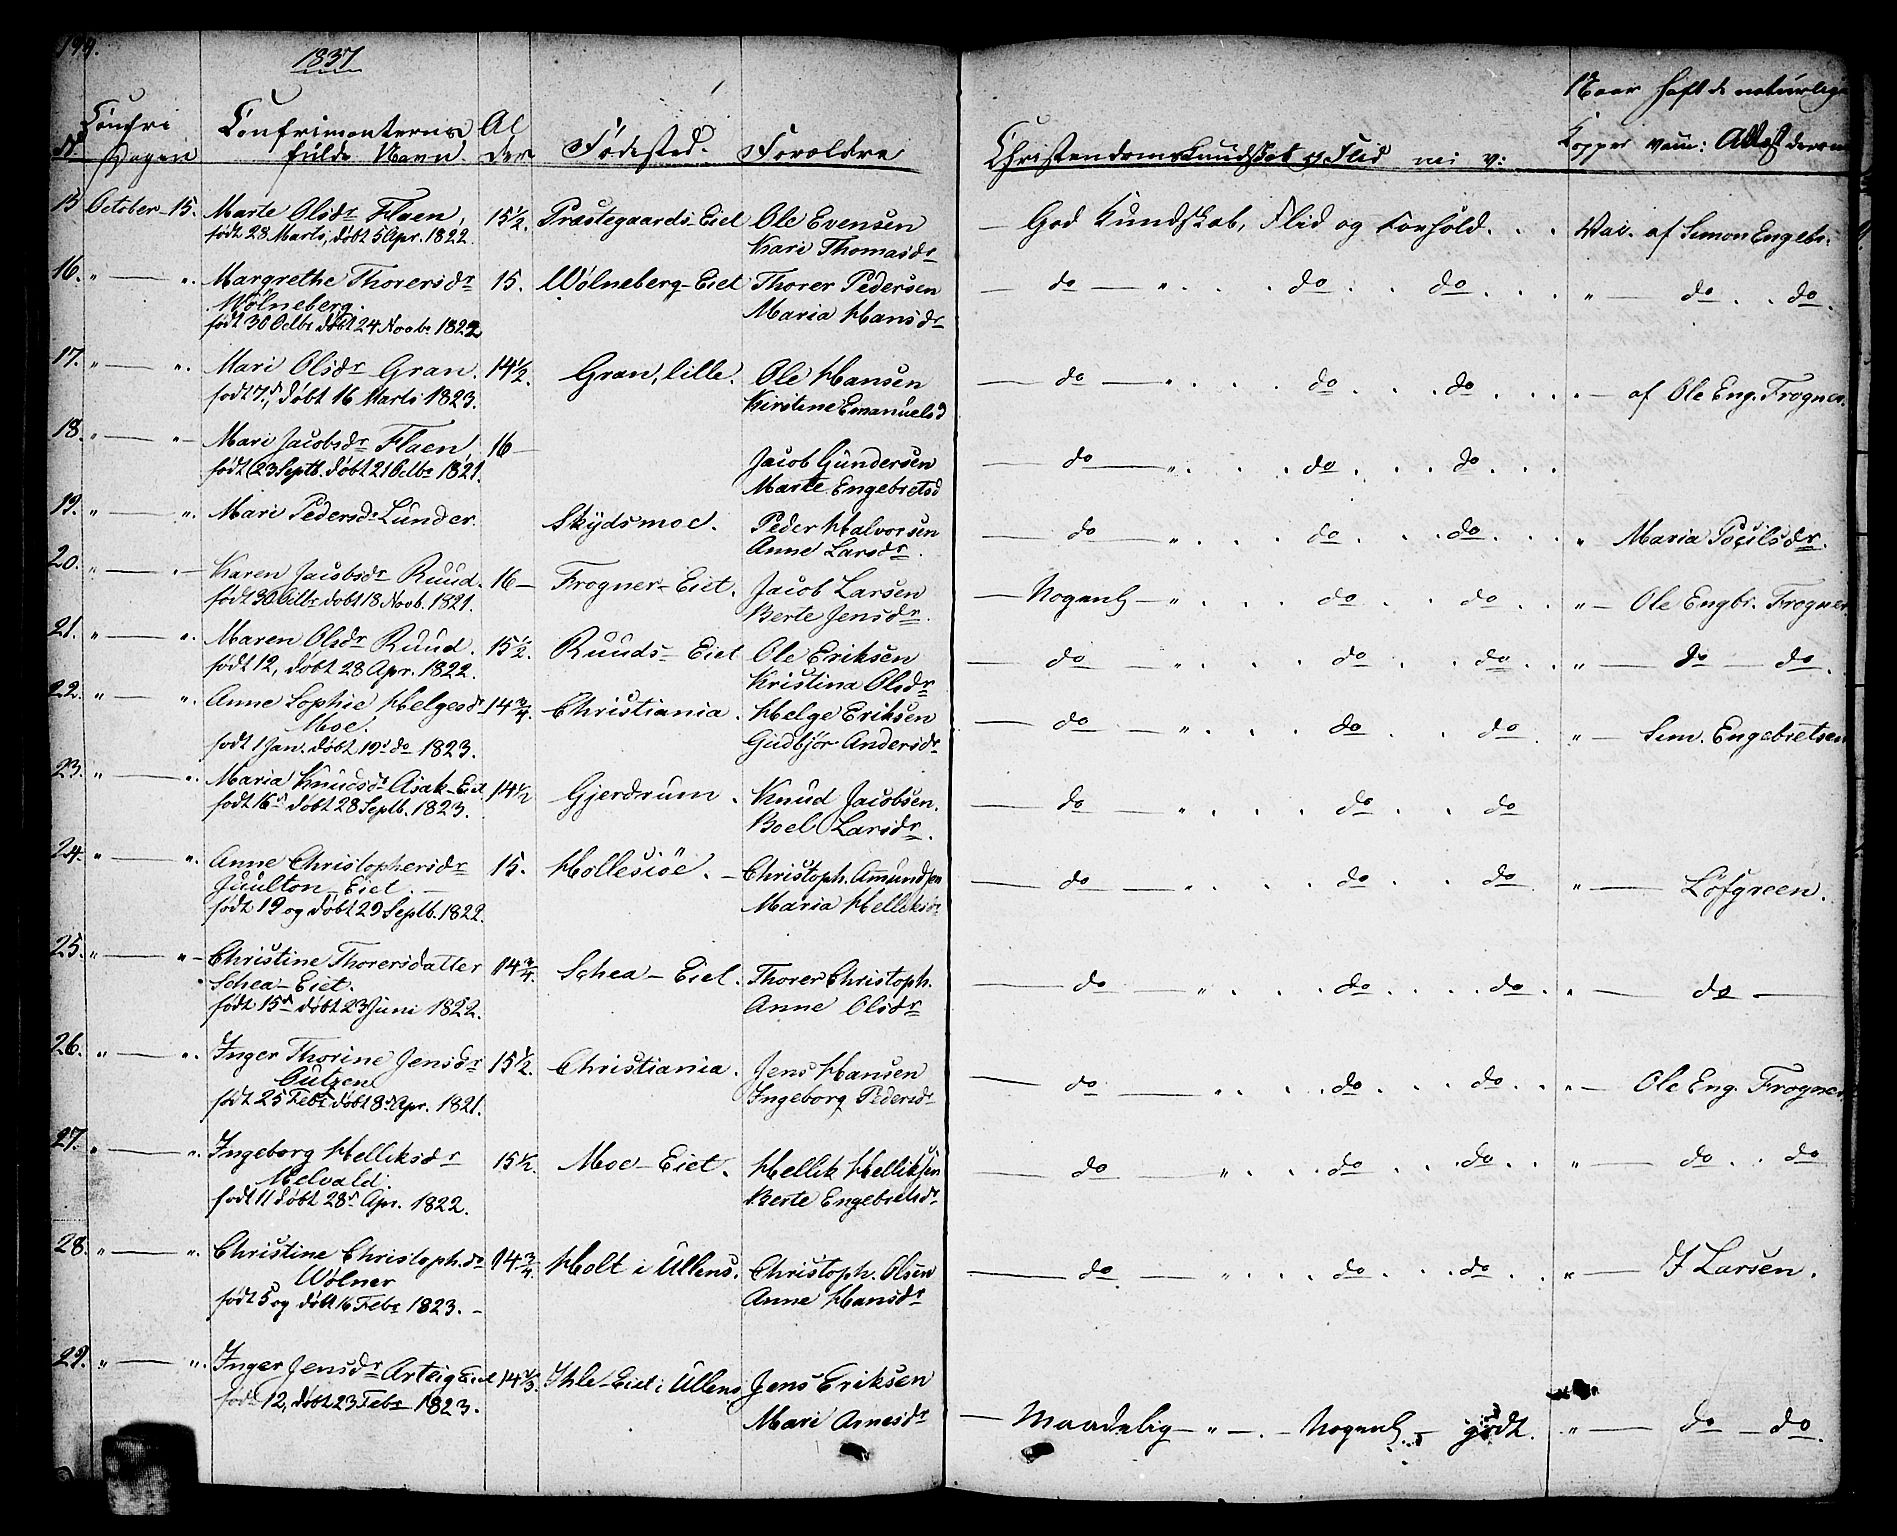 1837
Confri Confrimanternes Al Fødested. Forældre Christendomskundskab og Flid
N. Dagen fulde Navn. der Kopper
15 October 15. Marte Olsdr Flaen, 15 1/2. Præstegaards-Eiet Ole Evensen — God Kundskab, Flid og Forhold. . . Vac. af Simon Engebr.
født 28 Marts, døbt 5 Apr. 1822. Kari Thomasdr
16. " — ". Margrethe Thorersdr 15. Wølneberg-Eiet Thorer Pedersen — do — " . . . do . . do . . . " — do . . do.
Wølneberg. Maria Hansdr
født 30 Octbr døbt 24 Novbr 1822
17. " — ". Mari Olsdr Gran. 14 1/2. Gran, lille. Ole Hansen — do — " . . . do . . . do . . . . " — af Ole Eng. Frogner.
født 7d, døbt 16 Marts 1823. Kirstine Emanuelsd
18. " — " — Mari Jacobsdr Flaen, 16 — Jacob Gundersen — do — " . . . do . . . do . . .
født 23 Septb. døbt 21 Octbr 1821. Marte Engebretsd
19. " — ". Mari Pedersdr Lunder. Skydsmoe. Peder Halvorsen — do — " . . . do . . do . . . " Maria Poulsdr.
Anne Larsdr.
20. " — " — Karen Jacobsdr Ruud. 16 — Frogner-Eiet. Jacob Larsen — Nogenl — " . . . do . . do . . . " — Ole Engbr. Frogner
født 30 Octbr døbt 18 Novb. 1821. Berte Jensdr.
21. " — ". Maren Olsdr Ruud. 15 1/2. Ruuds-Eiet Ole Eriksen — do — " . . . do . . do . . . " — do — do.
født 12, døbt 28 Apr. 1822. Kristina Olsdr
22. " — ". Anne Sophie Helgesdr 14 3/4. Christiania. Helge Eriksen — do — " . . . do . . do . " — Sim. Engebretsen
Moe. Gudbjør Andersdr
født 1 Jan. døbt 19d do 1823.
23. " — ". Maria Knudsdr Asak-Eiet 14 1/2 Gjerdrum. Knud Jacobsen. — do — " . . . do . . do
født 16d døbt 28 Septb. 1823. Boel Larsdr.
24. " — ". Anne Christophersdr 15. Hollesiøe. — Christoph. Amundsen — do — " . . . do . . do . " — Løfgreen.
Juulton-Eiet. — Maria Helliksdr
født 19 og døbt 29 Septb. 1822.
25. " — " — Christine Thorersdatter 14 3/4. Schea-Eiet. Thorer Christoph. — do — " . . . do . . . . do . " — do —
Schea-Eiet. Anne Olsdr
født 15d døbt 23 Juni 1822.
26. " — ". Inger Thorine Jensdr 15 1/2. Christiania. Jens Hansen — do — " . . . do . . . do . . " — Ole Eng. Frogner
Ingeborg Pedersdr
født 25 Febr døbt 8d Apr. 1821.
27. " — ". Ingeborg Helliksdr 15 1/2. Moe-Eiet. Hellik Helliksen — do — " . . . do . . . do . . " — do . . do
Melvald. Berte Engebretsdr
født 11 døbt 28d Apr. 1822.
28. " — ". Christine Christoph.dr 14 3/4. Holt i Ullens. Christoph. Olsen — do — " . . . do . . . do . . " — J Larsen.
Wølner Anne Hansdr
født 5 og døbt 16 Febr 1823. —
29. " — ". Inger Jensdr Arteig Eiet 14 1/3. Ihle-Eiet i Ullens Jens Eriksen — Maadelig — " — . — Nogenl — godt. " — do — do.
født 12, døbt 23 Febr 1823. Mari Arnesdr